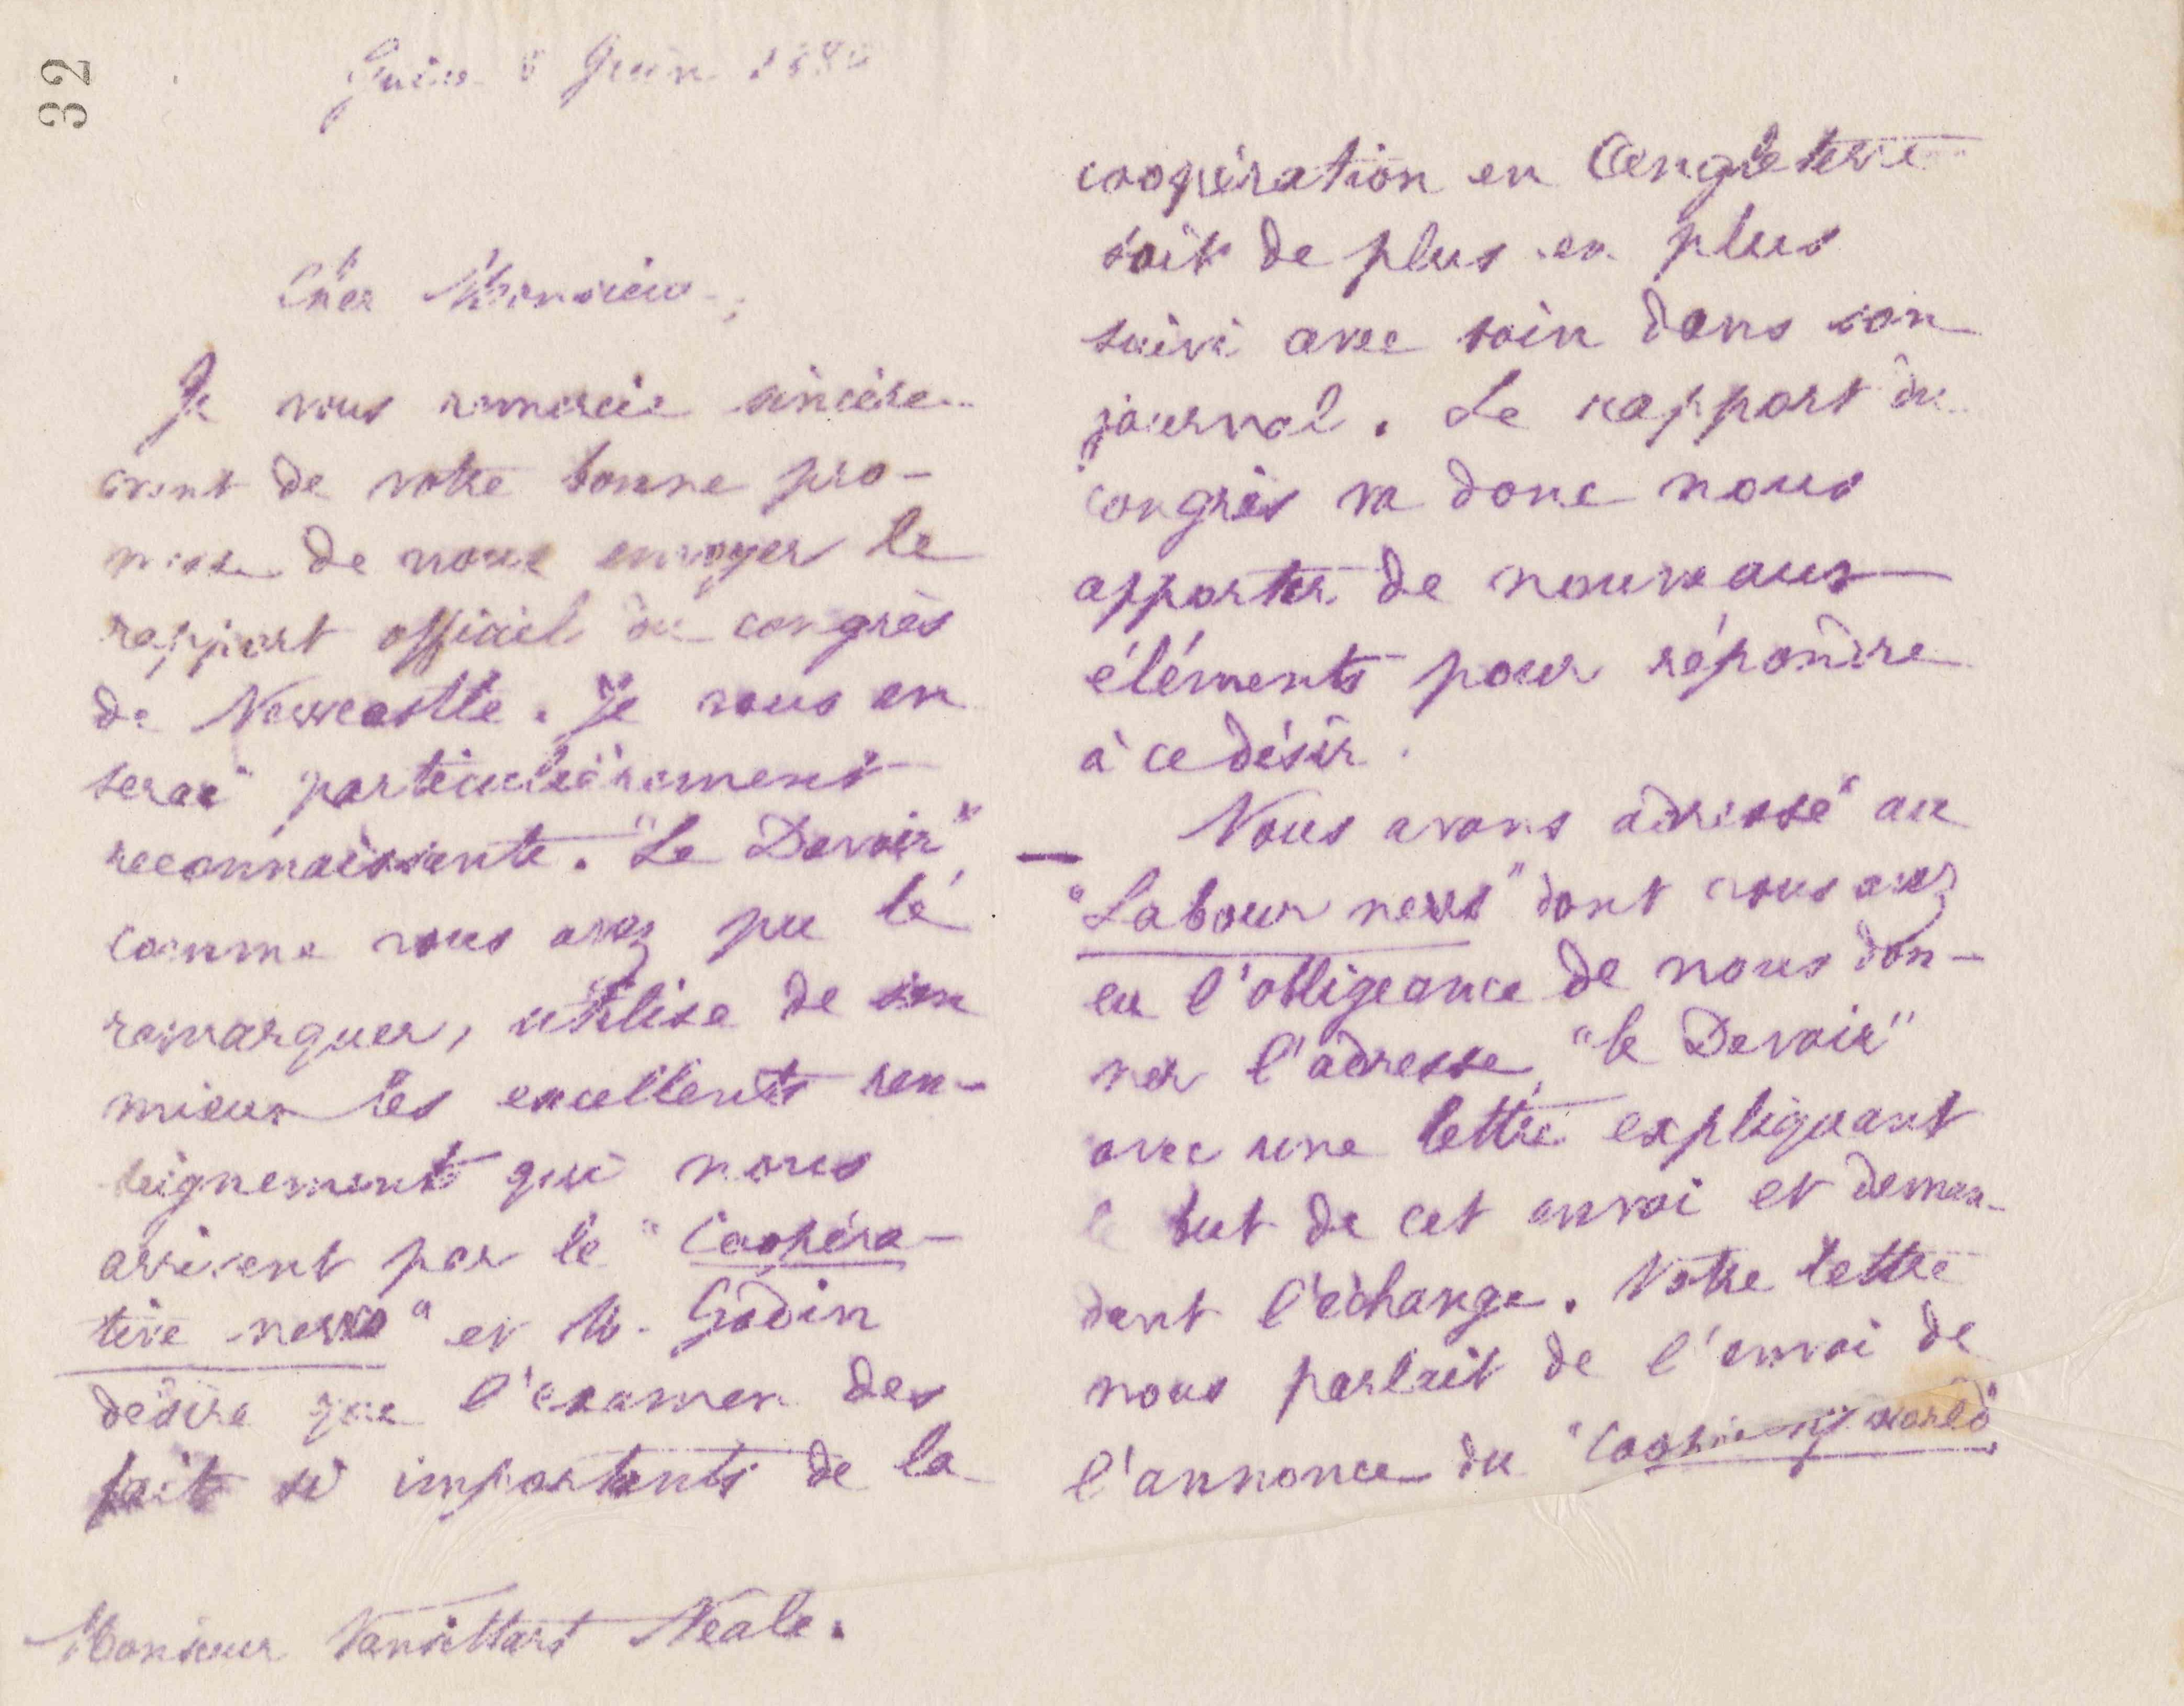 32
Guise 8 Juin 1880
Cher Monsieur,
Je vous remercie sincère-
ment de votre bonne pro-
messe de nous envoyer le
rapport officiel du congrès
de Newcastle. Je vous en
serai particulièrement
reconnaissante. "Le Devoir",
comme vous avez pu le
remarquer, utilise de son
mieux les excellents ren-
seignements qui nous
arrivent par le "Coopéra-
tive news" et M. Godin
désire que l'examen des
faits si importants de la
Monsieur Vansittart Neale.
coopération en Angleterre
soit de plus en plus
suivi avec soin dans son
journal. Le rapport du
congrès va donc nous
apporter de nouveaux
éléments pour répondre
à ce désir.
Nous avons adressé au
"Labour news" dont vous avez
eu l'obligeance de nous don-
ner l'adresse, "le Devoir"
avec une lettre expliquant
le but de cet envoi et deman-
dant l'échange. Votre lettre
nous parlait de l'envoi de
l'annonce du world"